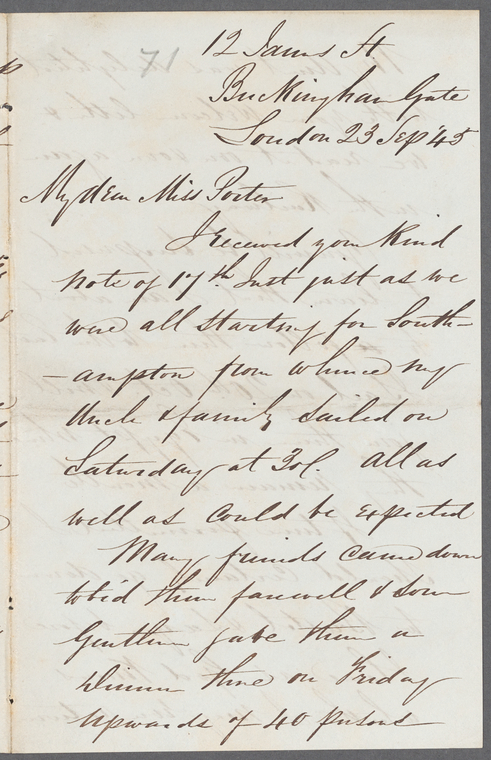 12 James St
Buckingham Gate
London 23 Sep '45
My dear Miss Porter
I received your kind
note of 17th Inst just as we
were all starting for South-
-ampton from whence my
Uncle & family sailed on
Saturday at 3 o'l. all as
well as could be expected
Many friends came down
to bid them farewell & some
Gentlemen gave them a
dinner there on Friday
upwards of 40 persons